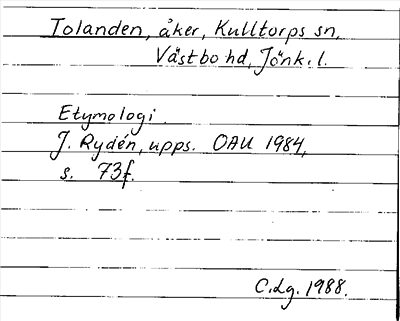 Tolanden, åker, Kulltorps sn,
Västbo hd, Jönk. l.
Etymologi.
J. Rydén, upps. OAU 1984,
s. 73f.
C.dg. 1988.